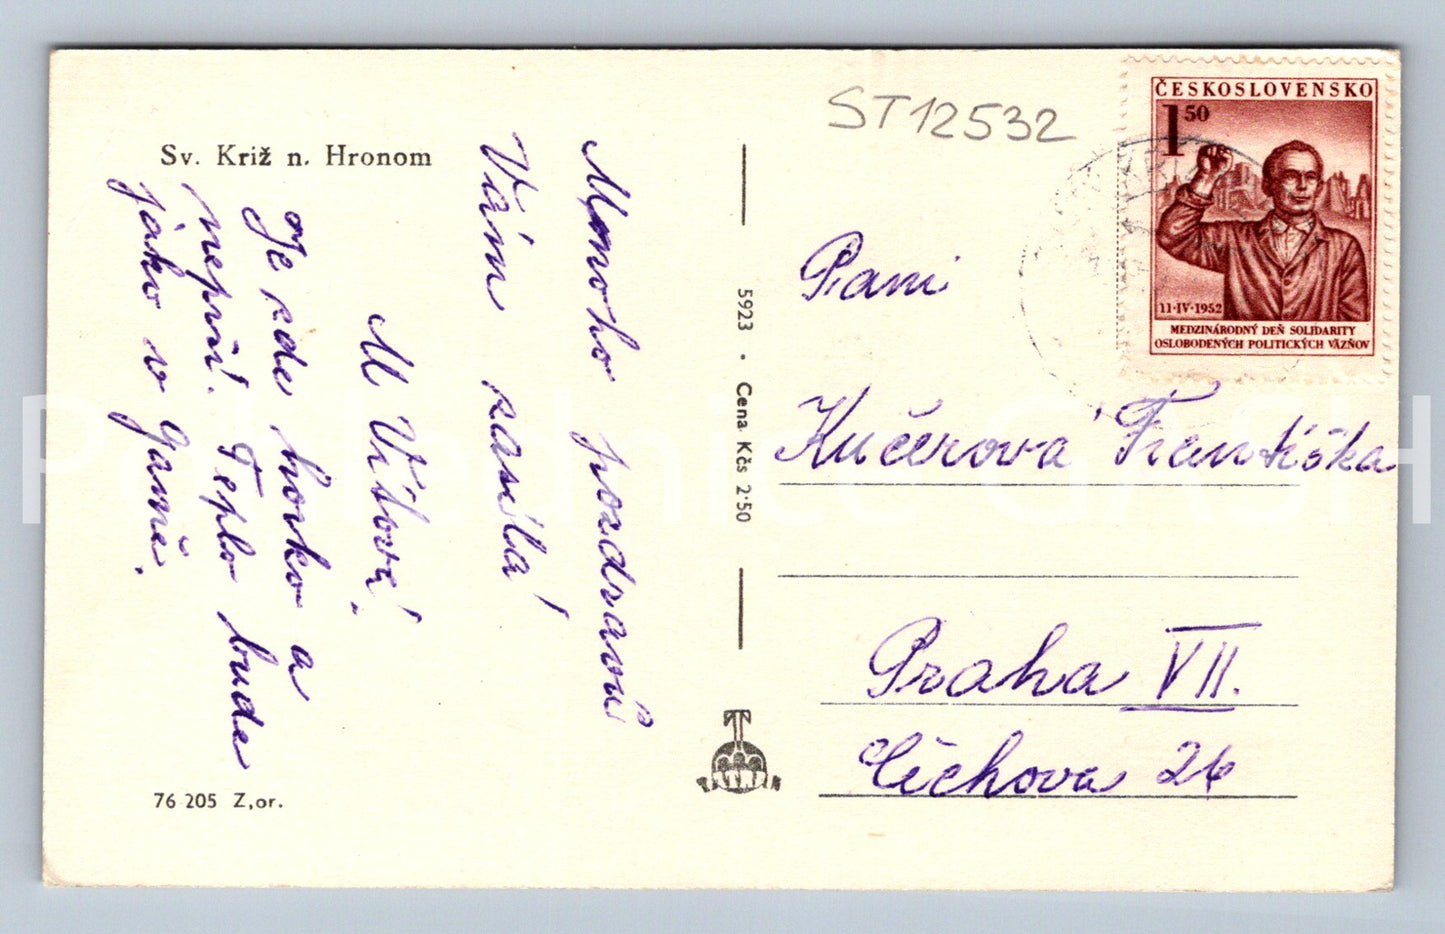 Sv. Križ n. Hronom
Mnoho pozdravů
Vám zasílá
M Vítová.
Je zde horko a
neprší. Teplo bude
jako v
76 205 Z,or.
5923 · Cena Kčs 2·50
ST12532
ČESKOSLOVENSKO
1 50
11·IV·1952
MEDZINÁRODNÝ DEŇ SOLIDARITY
OSLOBODENÝCH POLITICKÝCH VÄZŇOV
Paní
Kučerová Františka
Praha VII.
Čechova 26